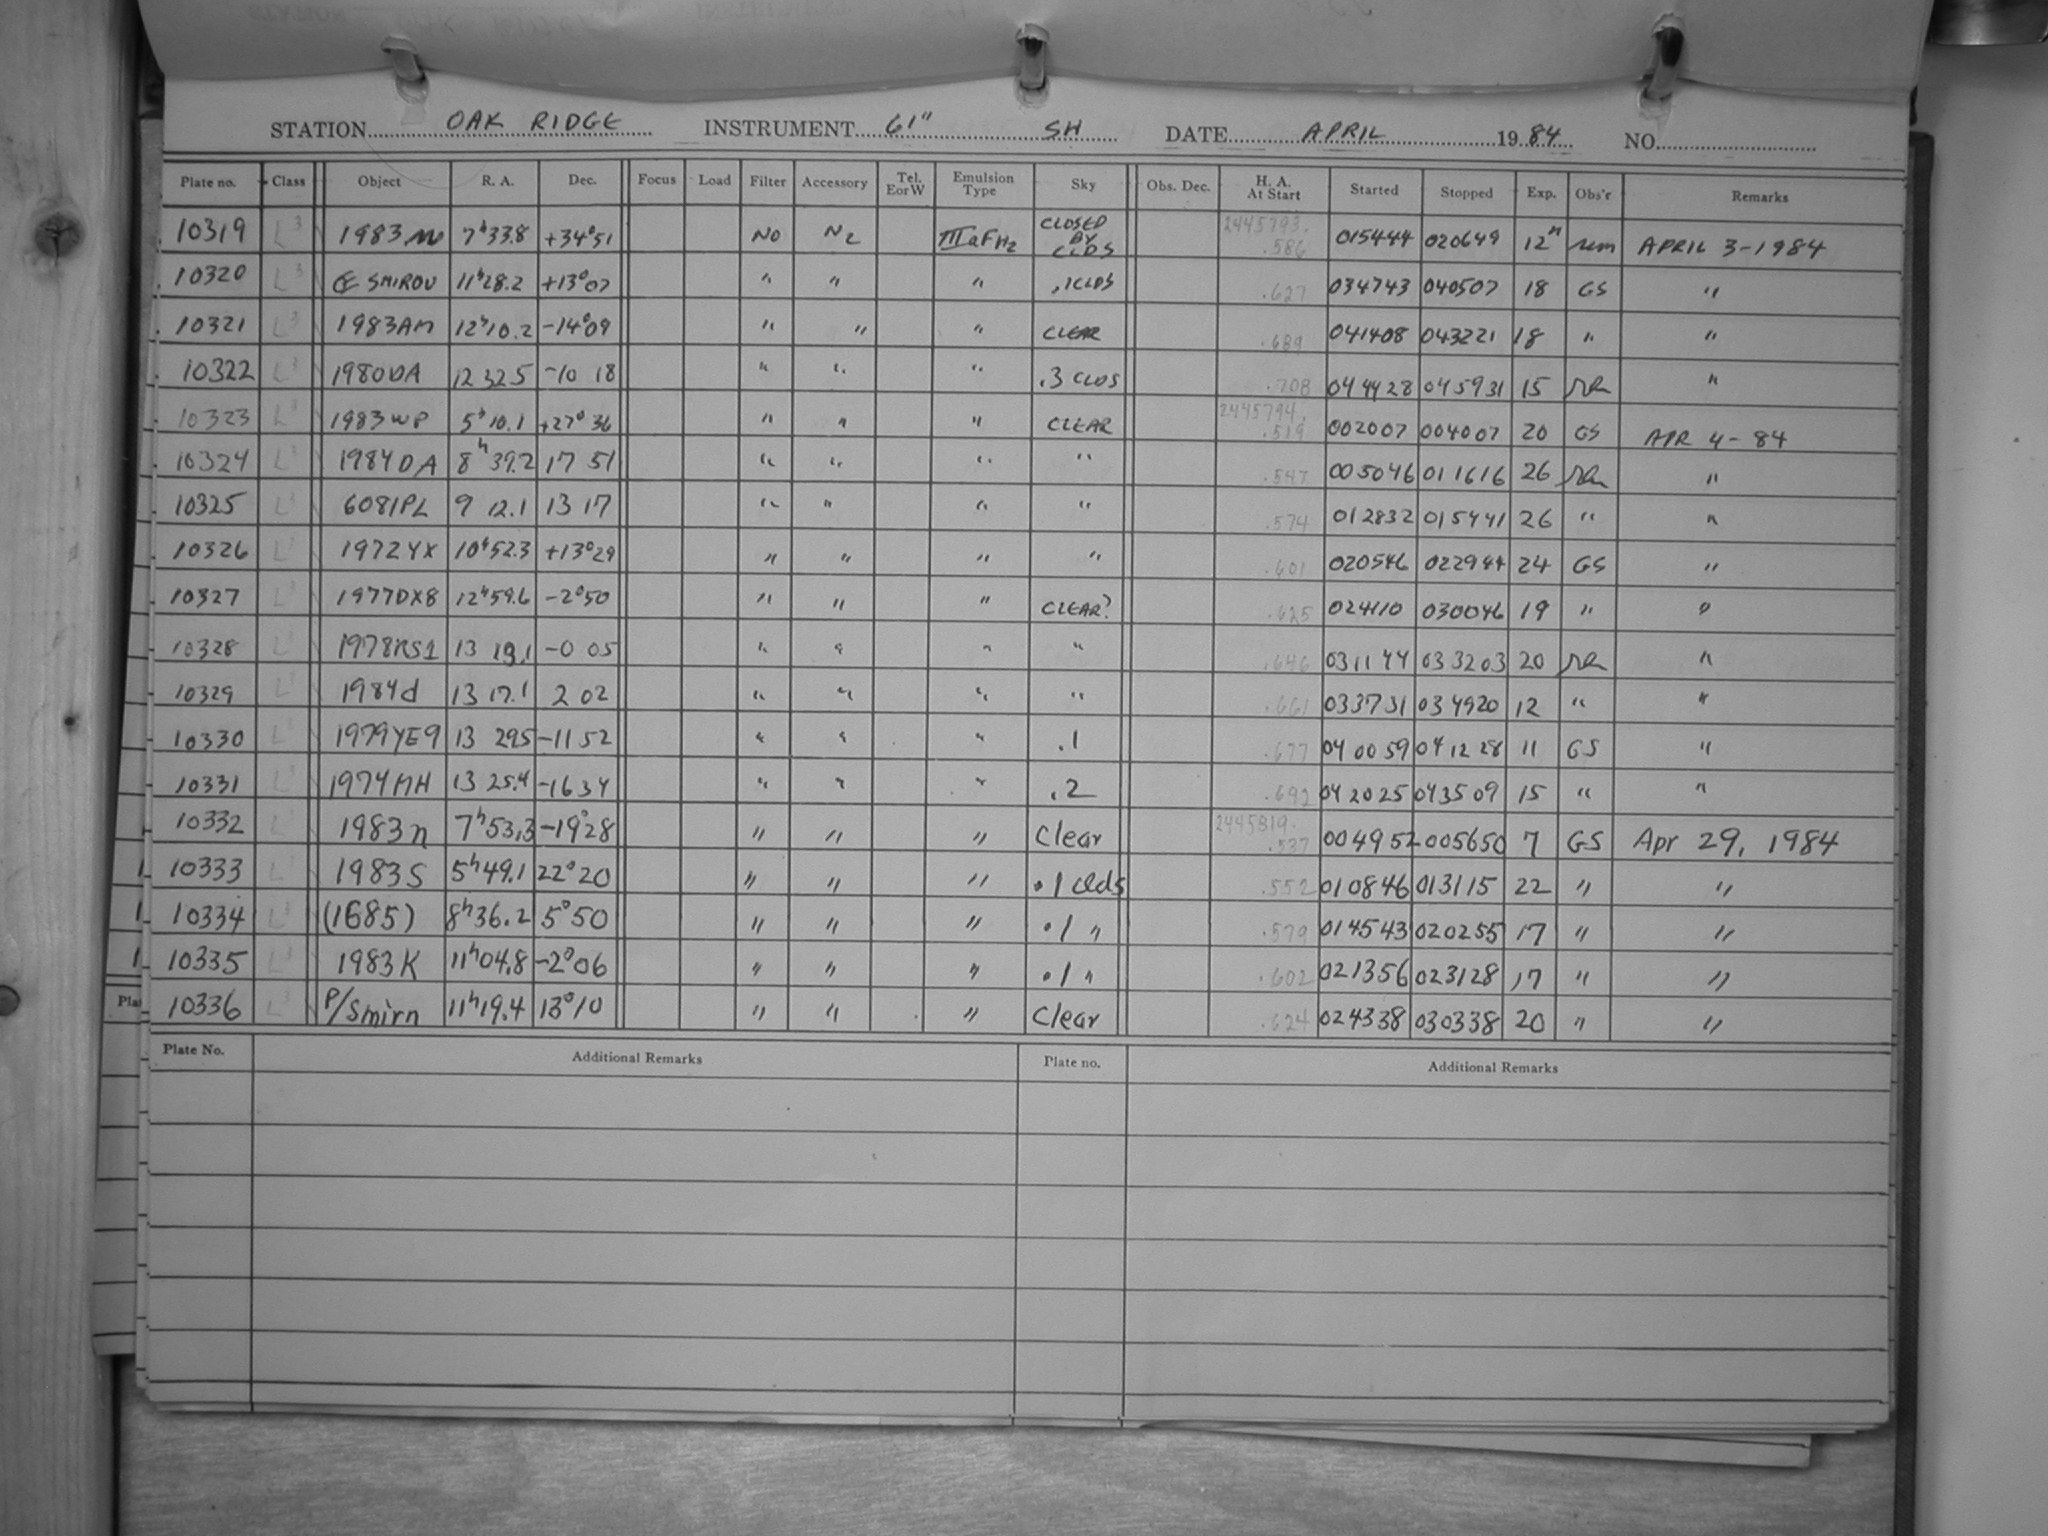 STATION OAK RIDGE INSTRUMENT 61" SH DATE APRIL 1984 NO.
Plate no. Class Object R. A. Dec. Focus Load Filter Accessory Tel. E or W Emulsion Type Sky Obs. Dec. H. A. At Start Started Stopped Exp. Obs'r Remarks
10319 L3 1983 7h33.8 +34°51 NO N2 IIIaFH2 CLOSED BY CLDS 2445793. .586 015444 020649 12m APRIL 3-1984
10320 L3 SMIROV 11h28.2 +13°07 " " " .1CLDS .627 034743 040507 18 GS "
10321 L3 1983AM 12h10.2 -14°09 " " " CLEAR .689 041408 043221 18 " "
10322 L3 1980DA 12 32.5 -10 18 " " " .3 CLDS .708 044428 045931 15 "
10323 L3 1983WP 5h10.1 +27°36 " " " CLEAR 2445794. .519 002007 004007 20 GS APR 4-84
10324 L3 1984DA 8h39.2 17 51 " " " " .547 005046 011616 26 "
10325 L3 6081PL 9 12.1 13 17 " " " " .574 012832 015441 26 " "
10326 L3 1972YX 10h52.3 +13°29 " " " " .601 020546 022944 24 GS "
10327 L3 1977DX8 12h59.6 -2°50 " " " CLEAR? .625 024110 030046 19 " "
10328 L3 1978RS1 13 19.1 -0 05 " " " " .646 031144 033203 20 "
10329 L3 1984d 13 17.1 2 02 " " " " .661 033731 034920 12 " "
10330 L3 1979YE9 13 29.5 -11 52 " " " .1 .677 040059 041228 11 GS "
10331 L3 1974MH 13 25.4 -16 34 " " " .2 .692 042025 043509 15 " "
10332 L3 1983n 7h53.3 -19°28 " " " Clear 2445819. .537 004952 005650 7 GS Apr 29, 1984
10333 L3 1983S 5h49.1 22°20 " " " .1 clds .552 010846 013115 22 " "
10334 L3 (1685) 8h36.2 5°50 " " " .1 " .579 014543 020255 17 " "
10335 L3 1983K 11h04.8 -2°06 " " " .1 " .602 021356 023128 17 " "
10336 L3 P/Smirn 11h19.4 13°10 " " " Clear .624 024338 030338 20 " "
Plate No. Additional Remarks Plate no. Additional Remarks